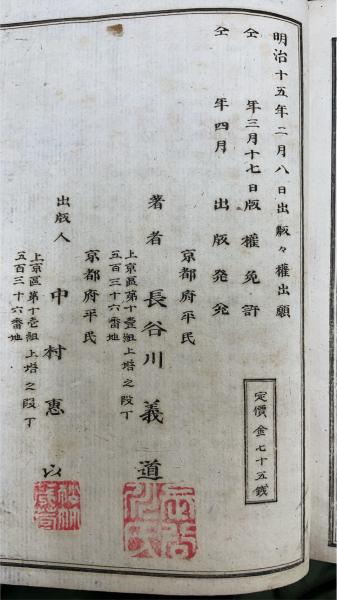 明治十五年二月八日出版々權出願
仝 年三月十七日版權免許
仝 年四月 出版発兌
定價金七十五錢
京都府平民
著者 長谷川義道
上京區第十壹組上塔之段丁
五百三十六番地
京都府平民
出版人 中村惠
上京區第十壹組上塔之段丁
五百三十六番地